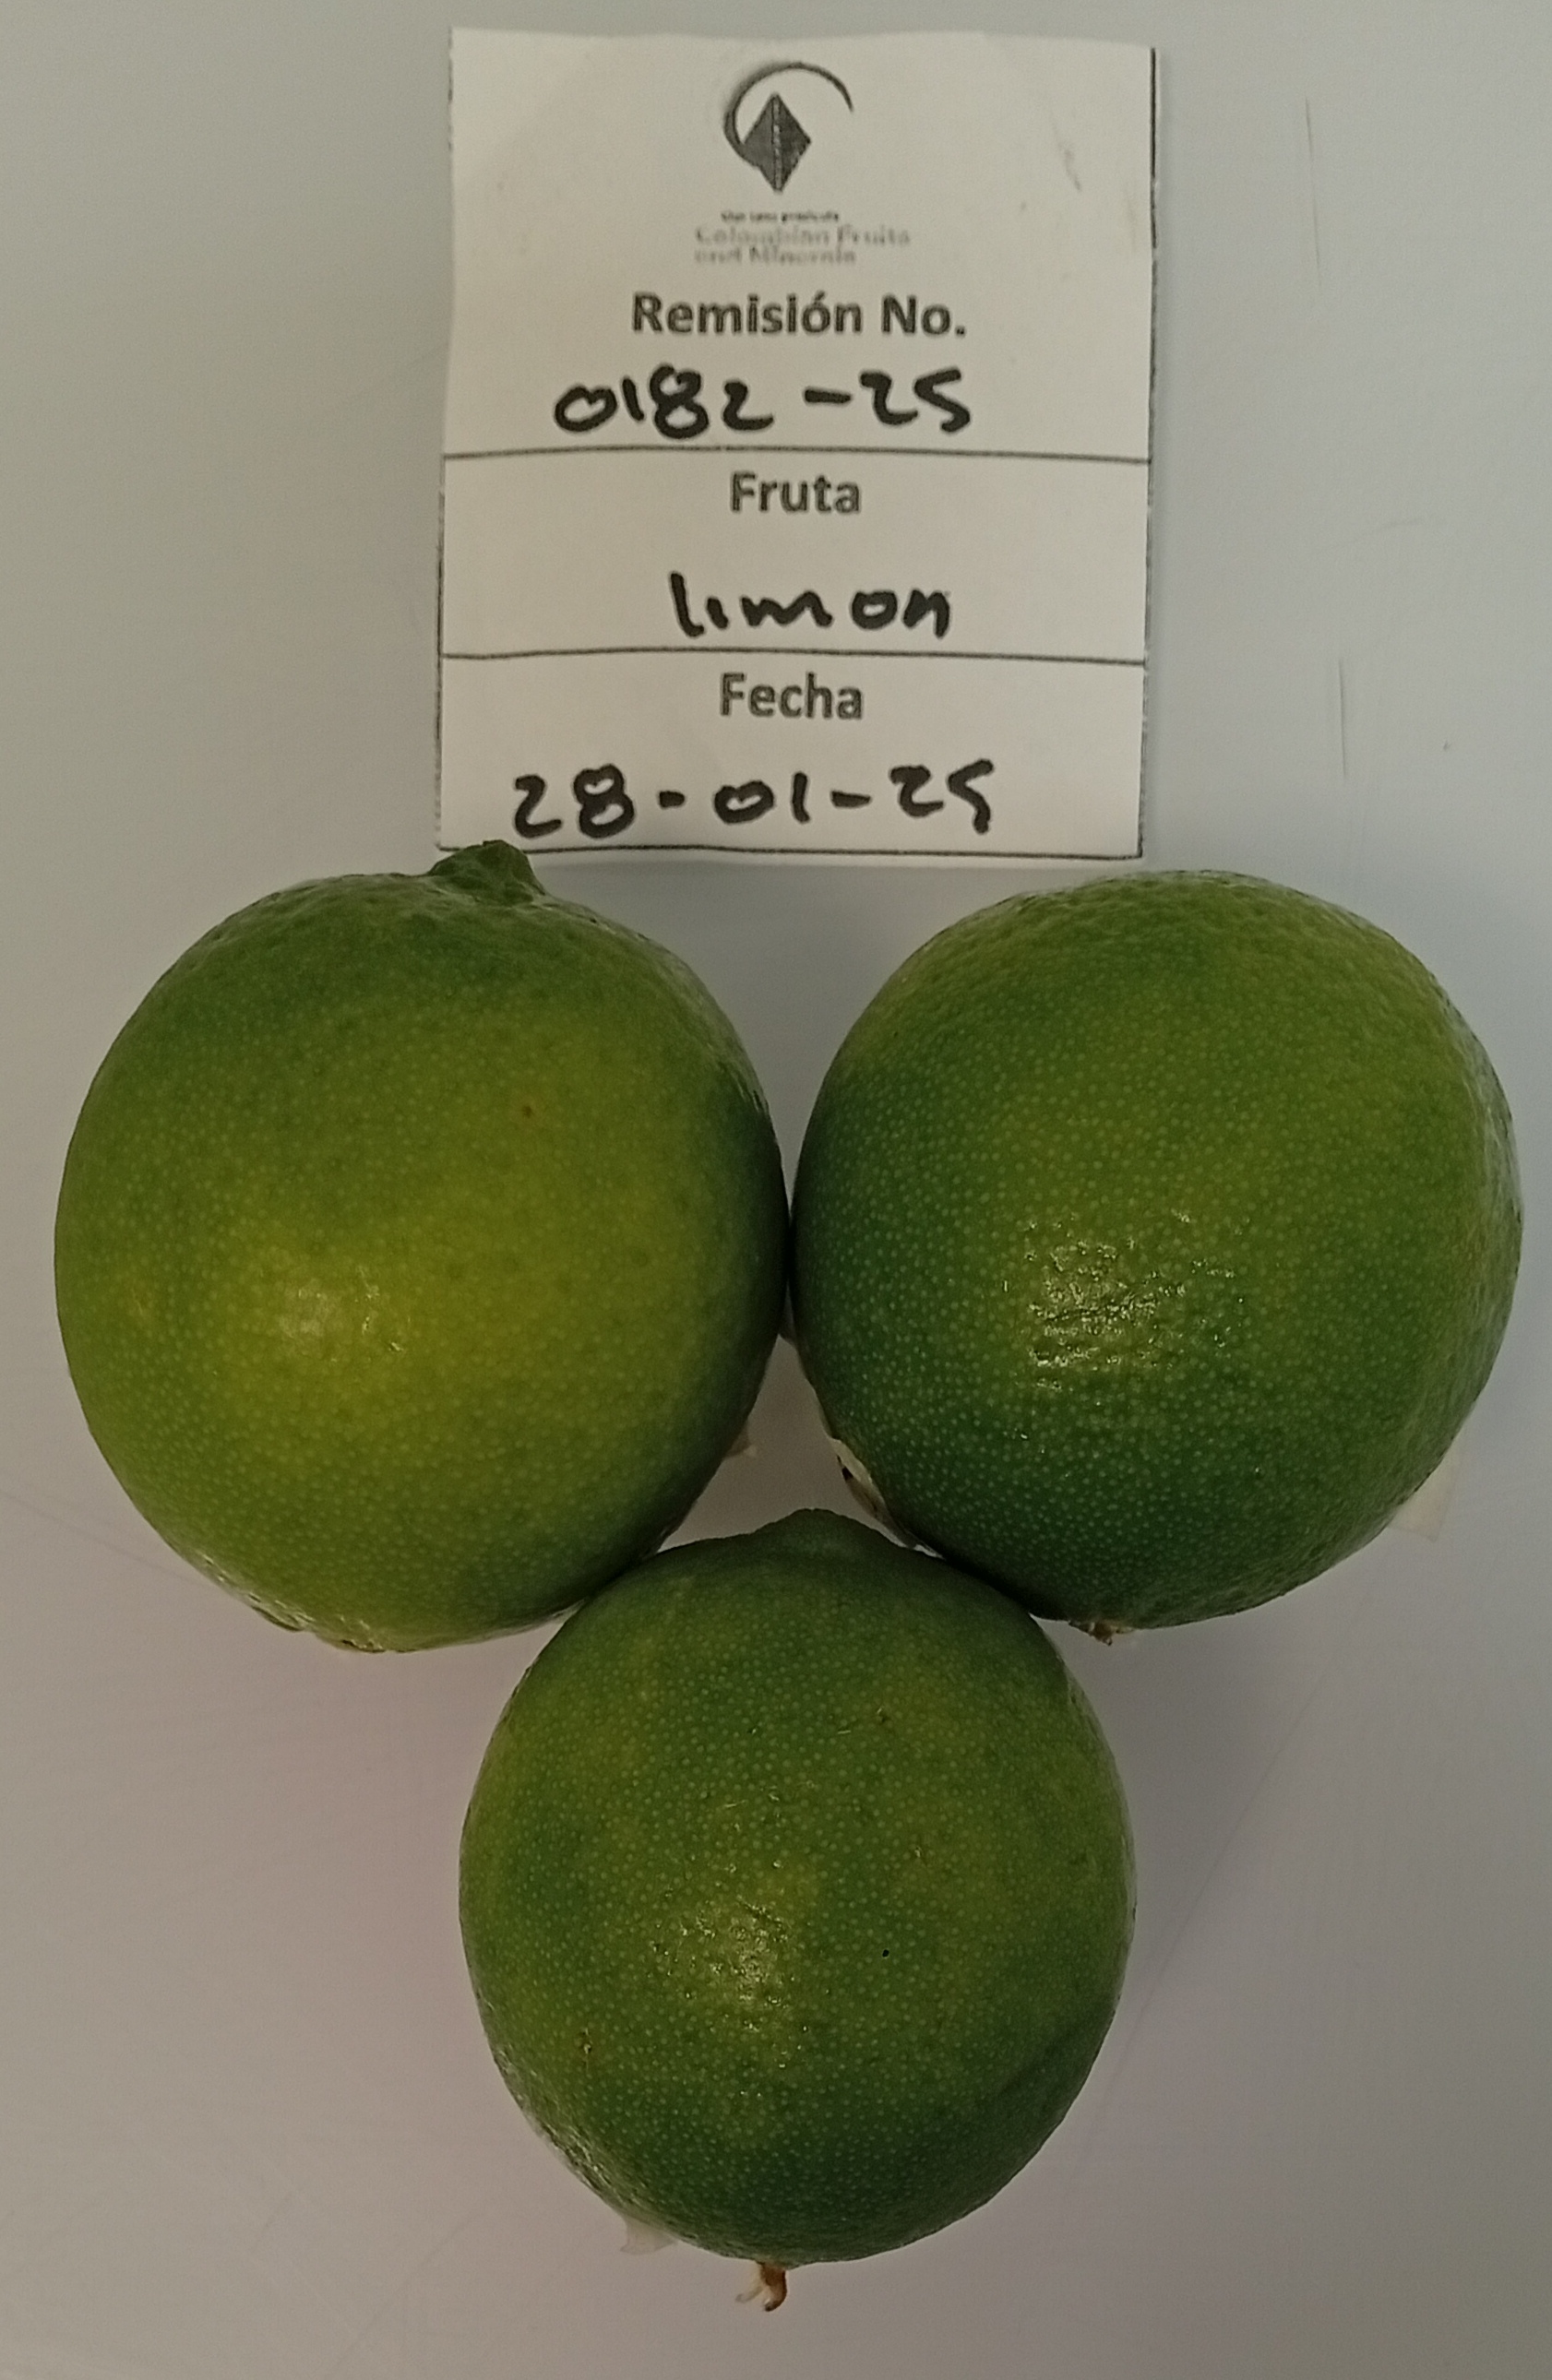 Colombian Fruits
and Minerals
Remisión No.
0182-25
Fruta
limon
Fecha
28-01-25